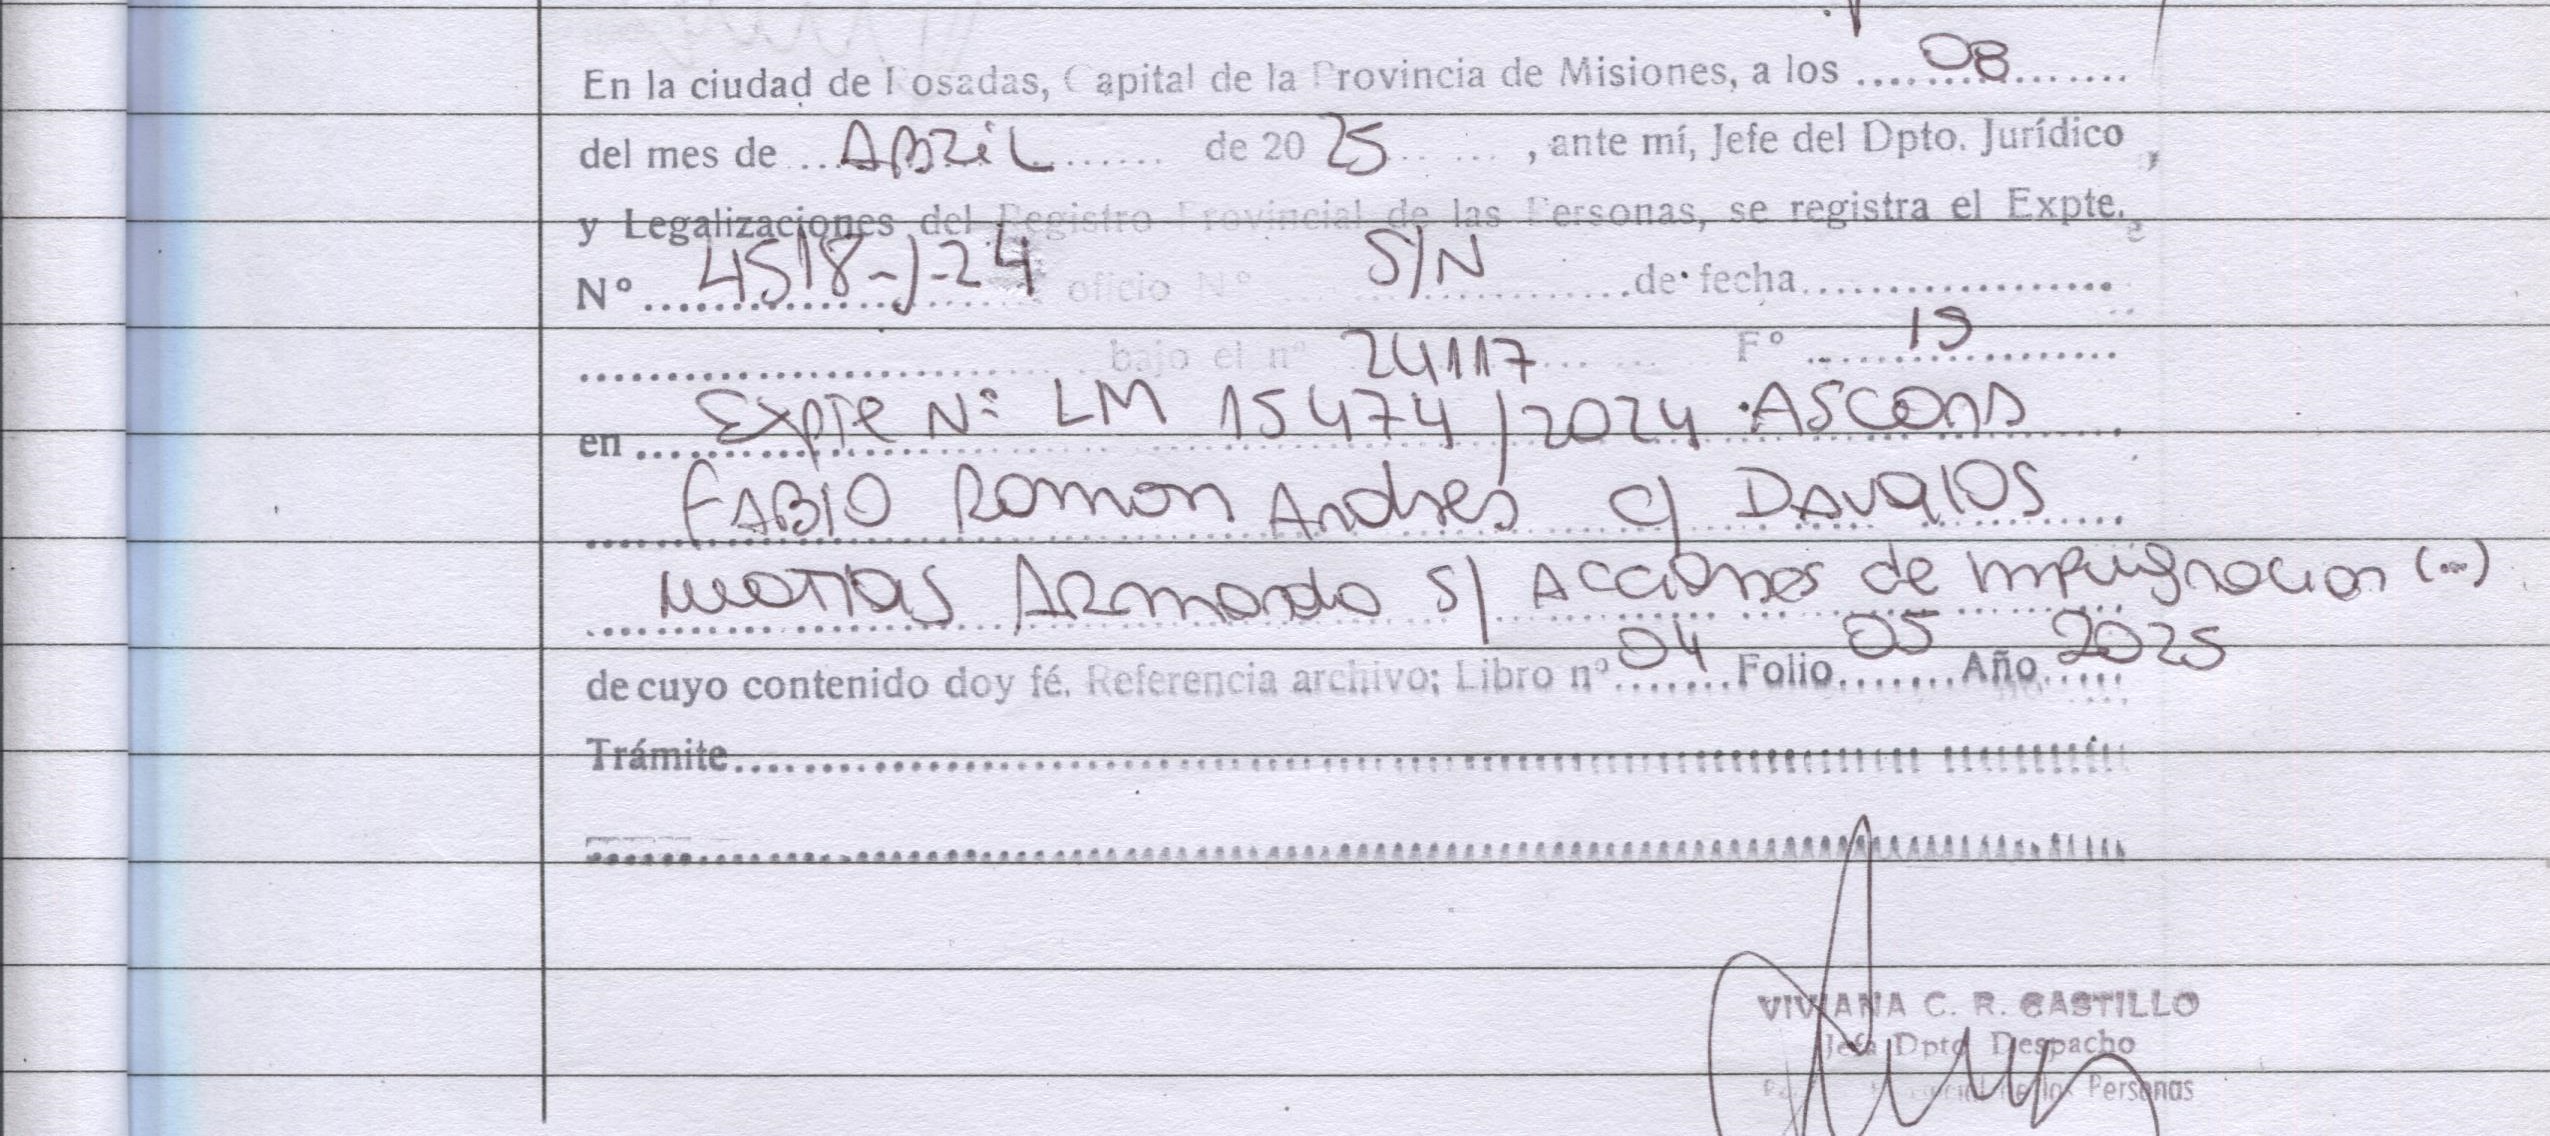 En la ciudad de Posadas, Capital de la Provincia de Misiones, a los ........08........
del mes de ...ABRiL....... de 20 25 ..... , ante mí, Jefe del Dpto. Jurídico
y Legalizaciones del Registro Provincial de las Personas, se registra el Expte.
Nº ....4518-J-24.... oficio Nº ........S/N........ de fecha....................
.............................. bajo el nº ..24117.... Fº ......19..........
en ....Expte Nº LM 15474/2024 ASCONA
FABIO Ramon Andres c/ DAvalos
Matias Armando s/ Acciones de impugnacion (...)
de cuyo contenido doy fé. Referencia archivo; Libro nº 04 Folio 05 Año 2025
Trámite..............................
VIVIANA C. R. CASTILLO
Jefa Dpto Despacho
Personas